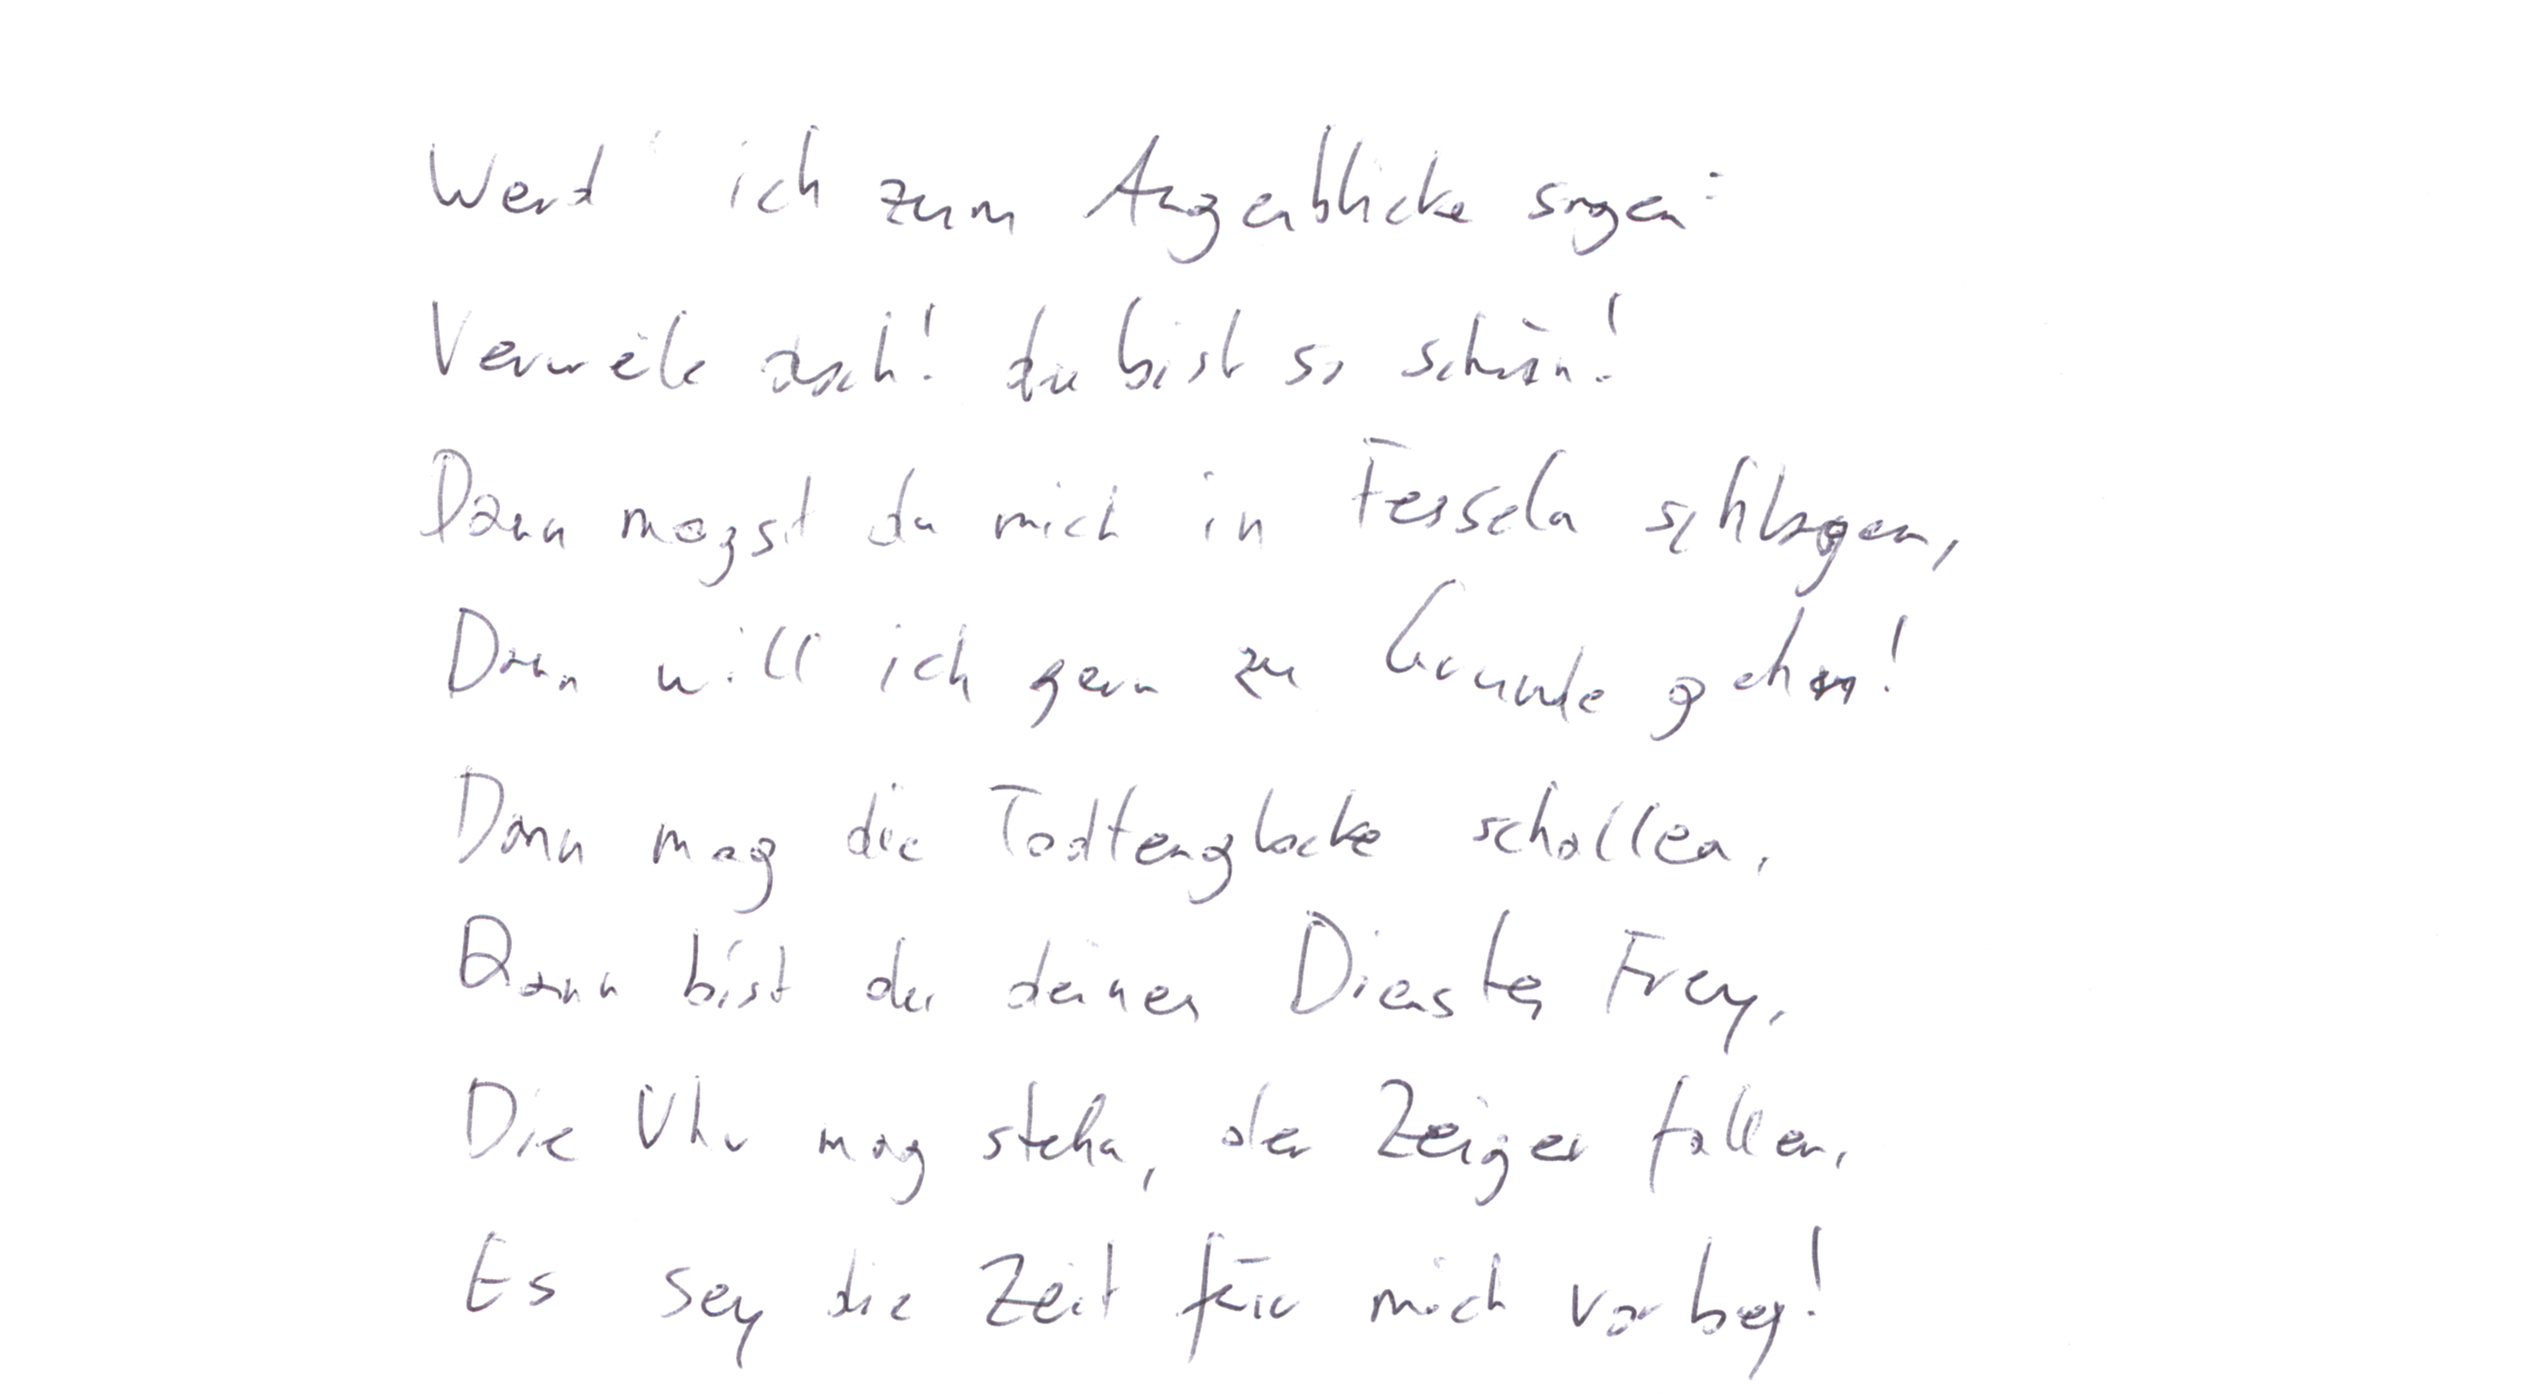 Werd' ich zum Augenblicke sagen:
Verweile doch! du bist so schön!
Dann magst du mich in Fesseln schlagen,
Dann will ich gern zu Grunde gehen!
Dann mag die Todtenglocke schallen,
Dann bist du deines Dienstes Frey,
Die Uhr mag stehn, der Zeiger fallen,
Es sey die Zeit für mich vorbey!